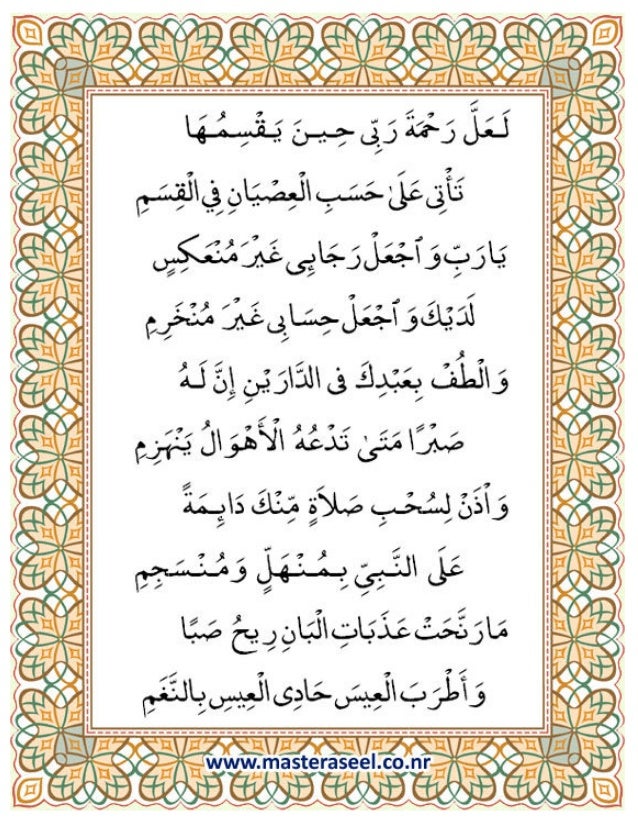 لَعَلَّ رَحْمَةَ رَبِّى حِينَ يَقْسِمُهَا
تَأْتِى عَلَىٰ حَسَبِ الْعِصْيَانِ فِي الْقِسَمِ
يَا رَبِّ وَ ٱجْعَلْ رَجَائِى غَيْرَ مُنْعَكِسٍ
لَدَيْكَ وَ ٱجْعَلْ حِسَابِى غَيْرَ مُنْخَرِمِ
وَ الْطُفْ بِعَبْدِكَ فى الدَّارَيْنِ إِنَّ لَهُ
صَبْرًا مَتَىٰ تَدْعُهُ الْأَهْوَالُ يَنْهَزِمِ
وَ اْذَنْ لِسُحْبِ صَلاَةٍ مِّنْكَ دَائِمَةً
عَلَى النَّبِيِّ بِمُنْهَلٍّ وَ مُنْسَجِمِ
مَا رَنَّحَتْ عَذَبَاتِ الْبَانِ رِيحُ صَبًا
وَ أَطْرَبَ الْعِيسَ حَادِى الْعِيسِ بِالنَّغَمِ
www.masteraseel.co.nr